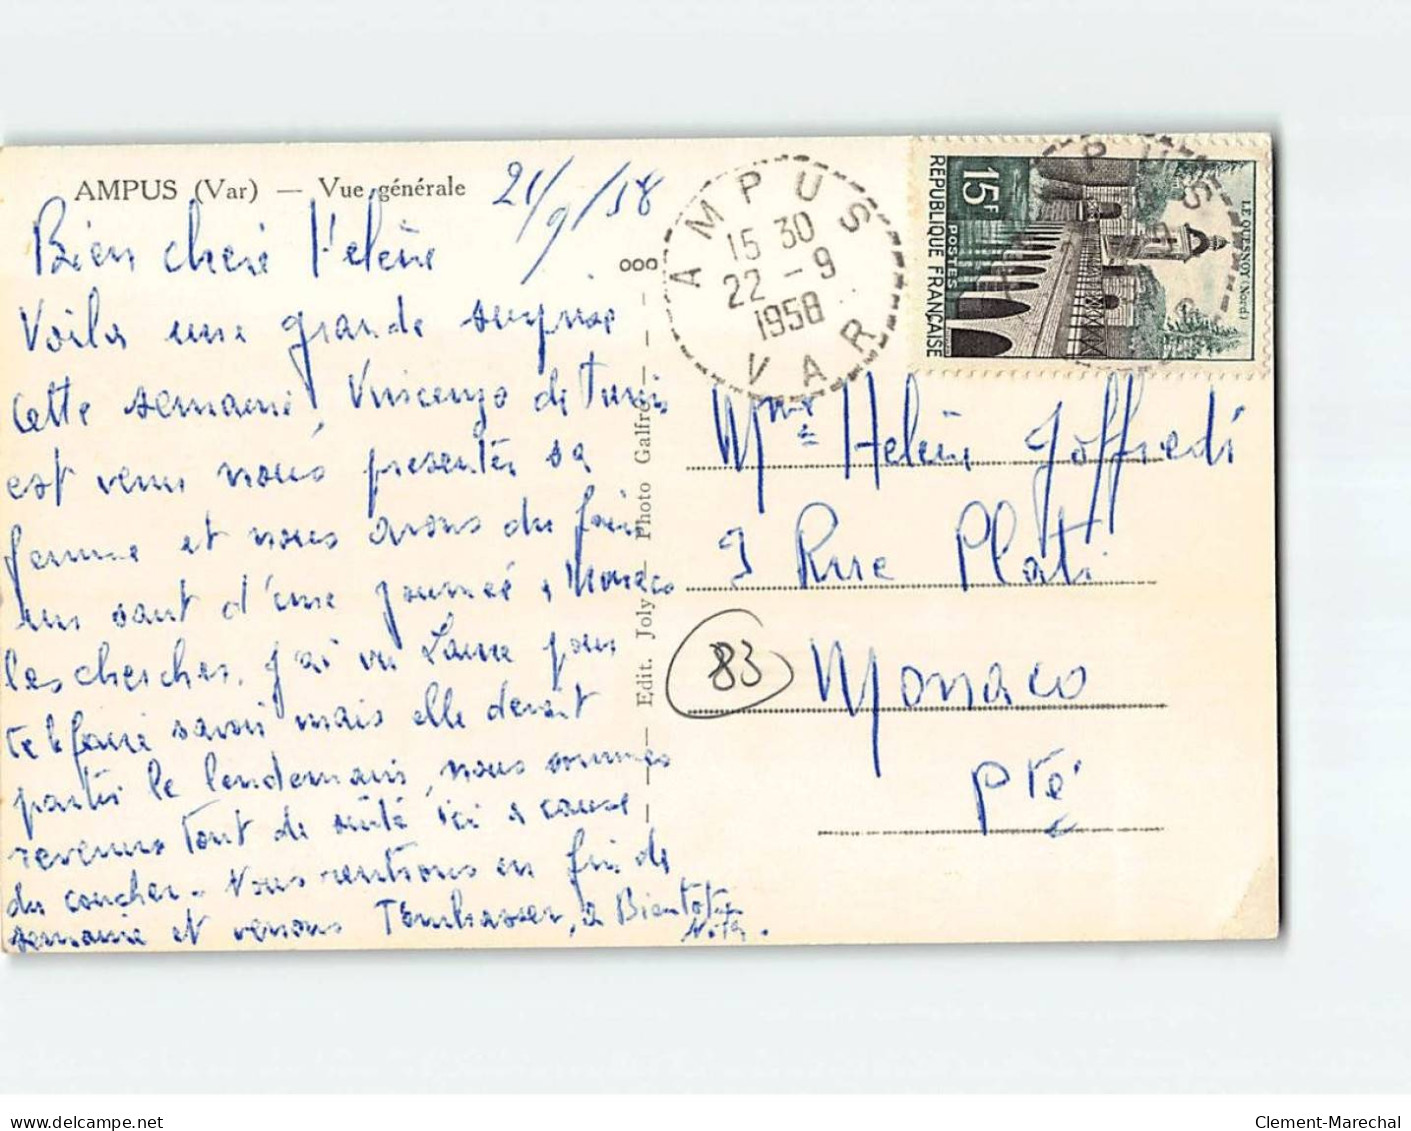 AMPUS (Var) — Vue générale
21/9/58
Bien chère Hélène
Voila une grande surprise
cette semaine, Vincenzo di Turin
est venu nous presenter sa
femme et nous avons du faire
un saut d'une journée a Monaco
les chercher. J'ai vu Laure pour
te le faire savoir mais elle devait
partir le lendemain, nous sommes
revenus tout de suite ici a cause
du coucher. Nous rentrions en fin de
semaine et venons t'embrasser, a Bientot
000
Edit. Joly — Photo Galfré
AMPUS
15 30
22 - 9
1958
VAR
15F
POSTES
REPUBLIQUE FRANÇAISE
LE QUESNOY (Nord)
PUS
Mme Helène Joffredi
9 Rue Plati
Monaco
Pté
83
delcampe.net
Clement-Marechal